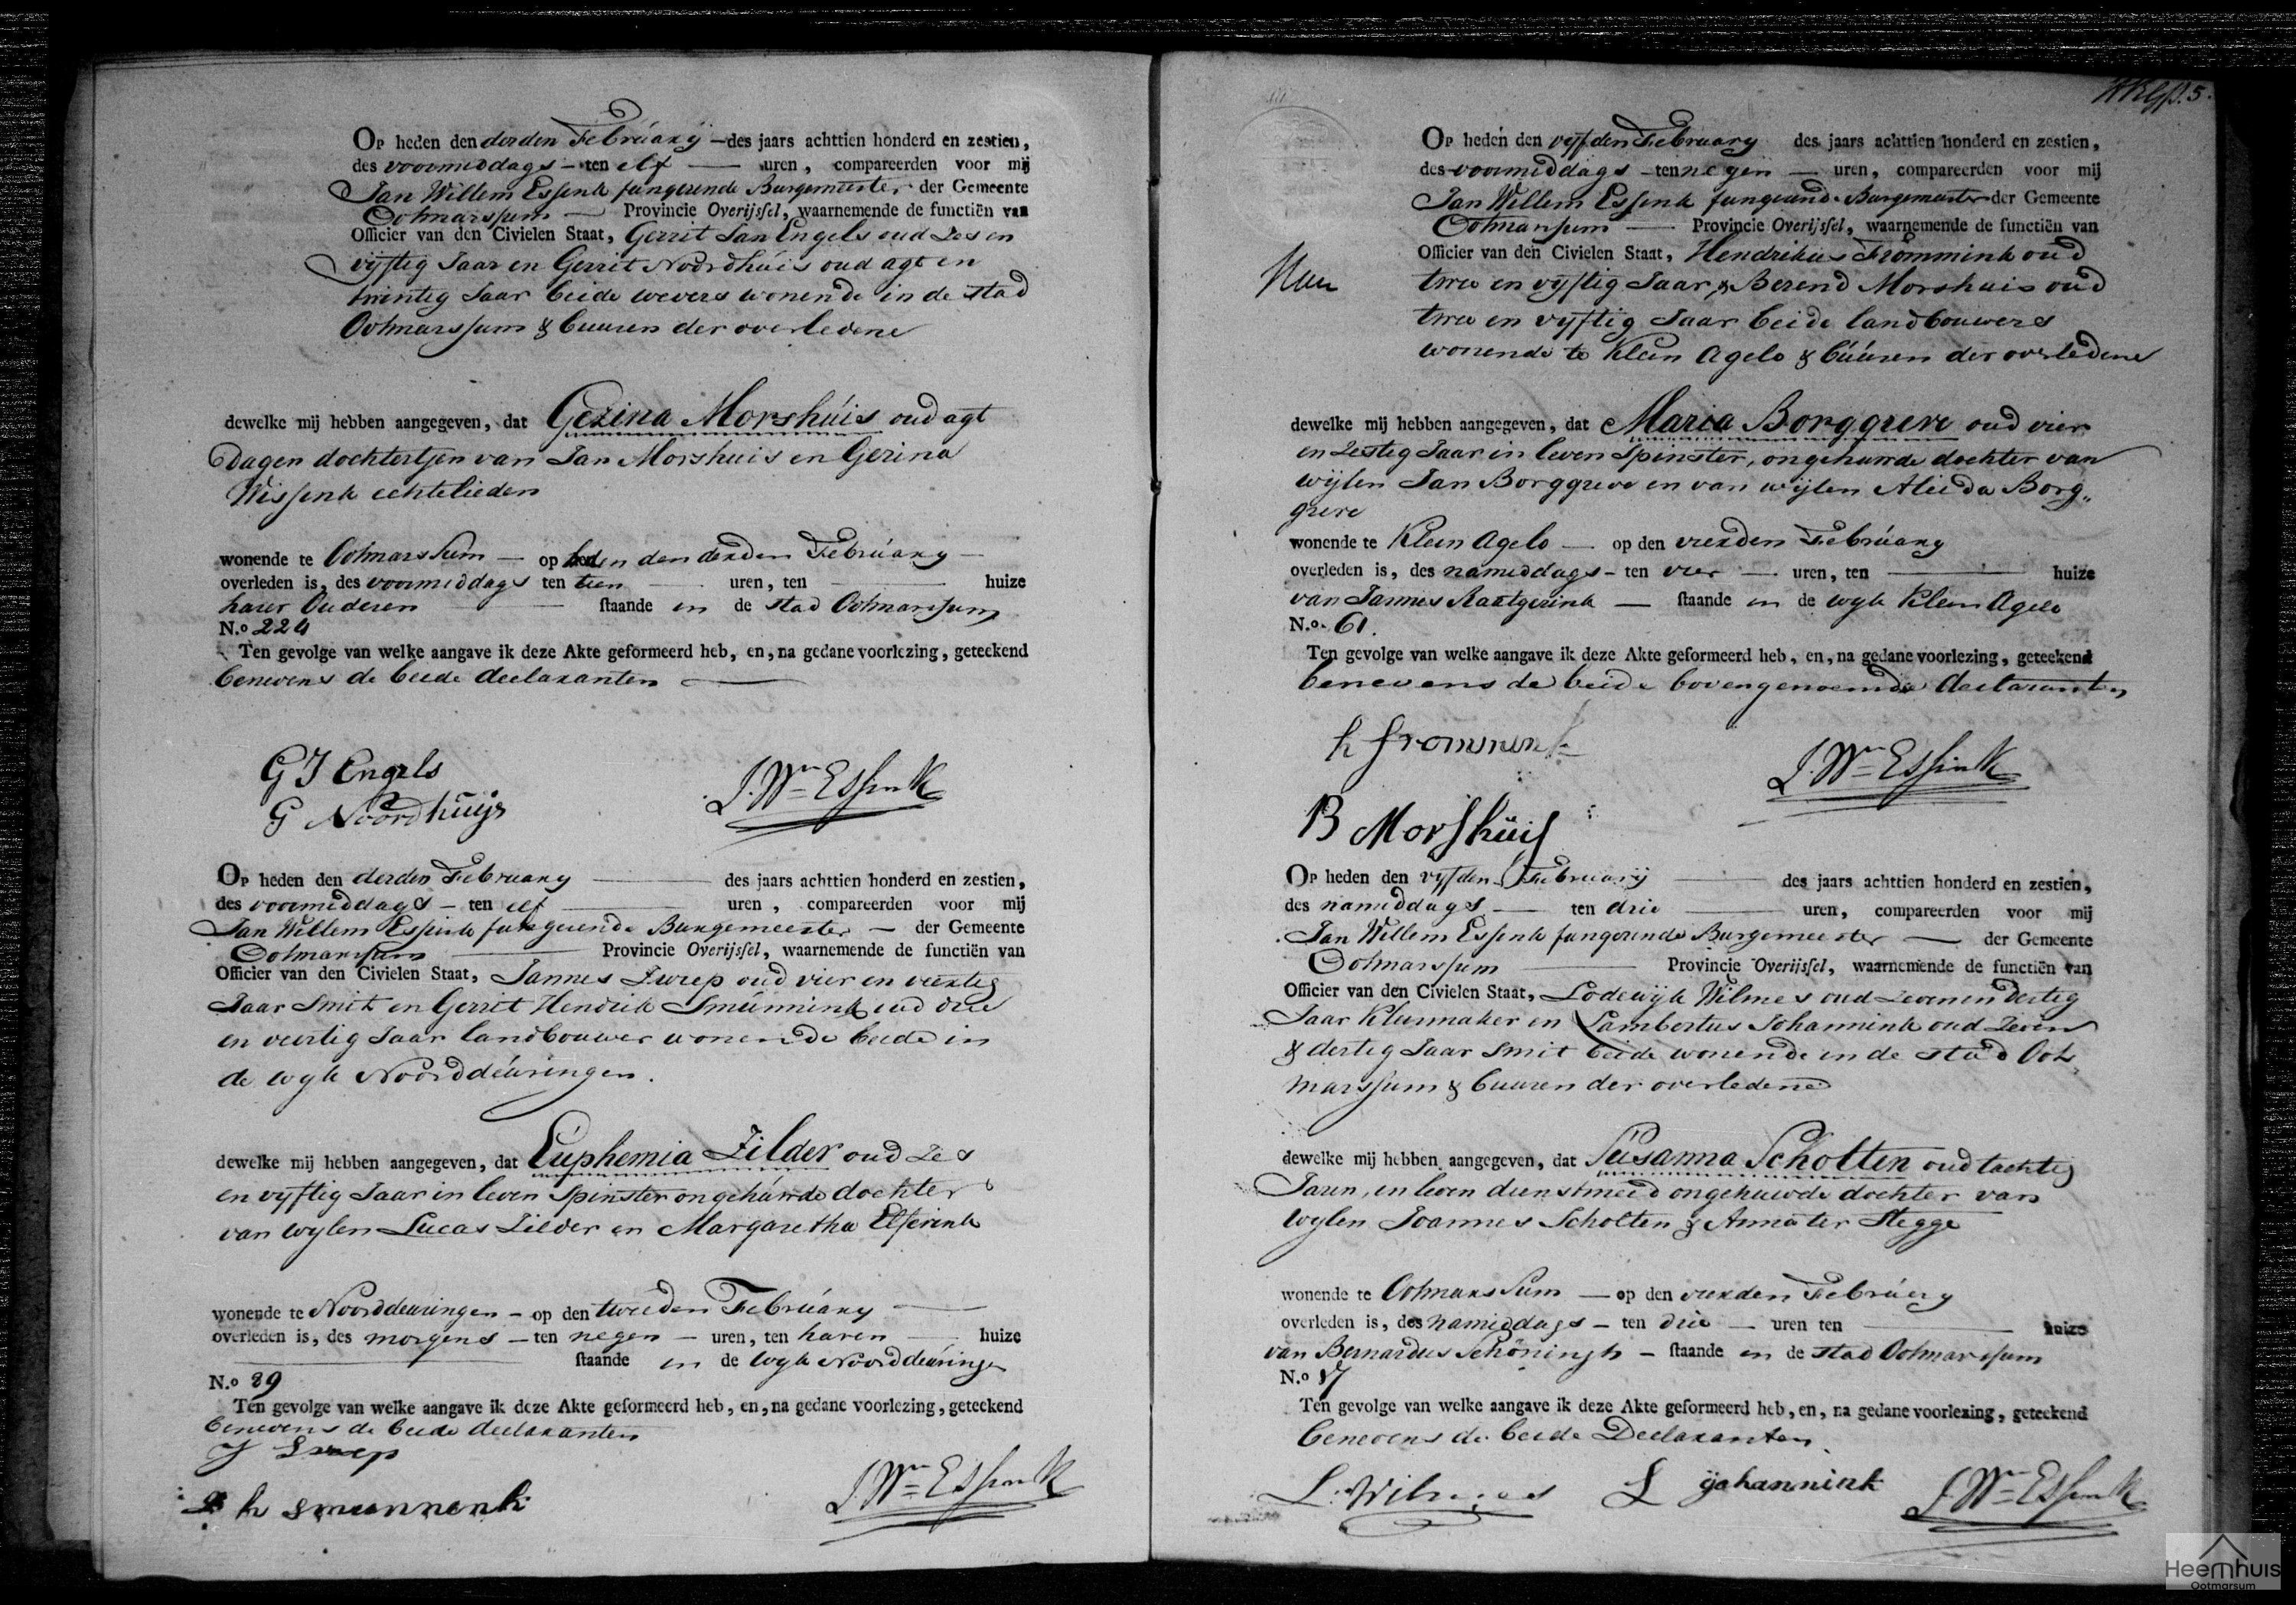 Op heden den derden Februarij — des jaars achttien honderd en zestien,
des voormiddags — ten elf — uren, compareerden voor mij
Jan Willem Essink fungerende Burgemeester der Gemeente
Ootmarssum — Provincie Overijssel, waarnemende de functiën van
Officier van den Civielen Staat, Gerrit Jan Engels oud Zes en
vijftig Jaar en Gerrit Noordhuis oud agt en
twintig Jaar beide wevers wonende in de stad
Ootmarssum & buuren der overledene
dewelke mij hebben aangegeven, dat Gezina Morshuis oud agt
Dagen dochtertjen van Jan Morshuis en Gezina
Wissink echtelieden
wonende te Ootmarssum — op heden den derden Februarij —
overleden is, des voormiddags ten tien — uren, ten — huize
harer Ouderen — staande in de stad Ootmarssum
N.o 224
Ten gevolge van welke aangave ik deze Akte geformeerd heb, en, na gedane voorlezing, geteekend
benevens de beide declaranten —
G J Engels
G Noordhuijs
J. Wm Essink
Op heden den derden February — des jaars achttien honderd en zestien,
des voormiddags — ten elf — uren, compareerden voor mij
Jan Willem Essink fungerende Burgemeester — der Gemeente
Ootmarssum — Provincie Overijssel, waarnemende de functiën van
Officier van den Civielen Staat, Jannes Zweep oud vier en veertig
Jaar Smit en Gerrit Hendrik Smeunnink oud drie
en veertig Jaar landbouwer wonende beide in
de wyk Noorddeuringen.
dewelke mij hebben aangegeven, dat Euphemia Zilder oud Zes
en vyftig Jaar in leven Spinster ongehuwde dochter
van wylen Lucas Zilder en Margaretha Elferink
wonende te Noorddeuringen — op den tweeden February —
overleden is, des morgens — ten negen — uren, ten haren — huize
— staande in de wyk Noorddeuringen
N.o 29
Ten gevolge van welke aangave ik deze Akte geformeerd heb, en, na gedane voorlezing, geteekend
benevens de beide declaranten
J Sweep
h smeunnenk
J. Wm Essink
5.
Op heden den vyfden February des jaars achttien honderd en zestien,
des voormiddags — ten negen — uren, compareerden voor mij
Jan Willem Essink fungerende Burgemeester der Gemeente
Ootmarssum — Provincie Overijssel, waarnemende de functiën van
Officier van den Civielen Staat, Hendrikus Frommink oud
twee en vyftig Jaar, & Berend Morshuis oud
twee en vyftig Jaar beide landbouwers
wonende te Klein Agelo & buuren der overledene
dewelke mij hebben aangegeven, dat Maria Borggreve oud vier
en Zestig Jaar in leven Spinster, ongehuwde dochter van
wijlen Jan Borggreve en van wijlen Aleida Borg„
greve
wonende te Klein Agelo — op den vierden February
overleden is, des namiddags — ten vier — uren, ten — huize
van Jannes Raatgerink — staande in de wyk Klein Agelo
N.o 61.
Ten gevolge van welke aangave ik deze Akte geformeerd heb, en, na gedane voorlezing, geteekend
benevens de beide bovengenoemde declaranten
h frommink
J. Wm Essink
B Morshuis
Op heden den vyfden February — des jaars achttien honderd en zestien,
des namiddags — ten drie — uren, compareerden voor mij
Jan Willem Essink fungerende Burgemeester — der Gemeente
Ootmarssum — Provincie Overijssel, waarnemende de functiën van
Officier van den Civielen Staat, Lodewyk Wilmes oud Zeven en dertig
Jaar Kleermaker en Lambertus Johannink oud Zeven
& dertig Jaar Smit beide wonende in de stad Oot„
marssum & buuren der overledene
dewelke mij hebben aangegeven, dat Susanna Scholten oud tachtig
Jaren, in leven dienstmeid ongehuwde dochter van
wylen Joannes Scholten & Anna ter Stegge
wonende te Ootmarssum — op den vierden February
overleden is, des namiddags — ten drie — uren ten — huize
van Bernardus Schöningh — staande in de stad Ootmarssum
N.o 17
Ten gevolge van welke aangave ik deze Akte geformeerd heb, en, na gedane voorlezing, geteekend
benevens de beide Declaranten.
L. Wilmes
L johannink
J. Wm Essink
Heemhuis
Ootmarsum